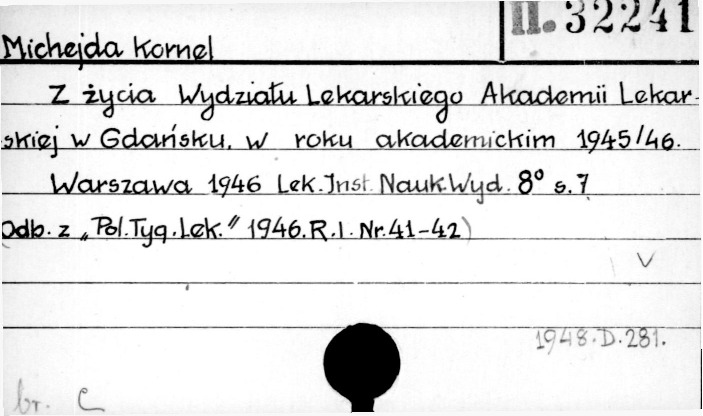 II. 32241
Michejda Kornel
Z życia Wydziału Lekarskiego Akademii Lekar-
skiej w Gdańsku, w roku akademickim 1945/46.
Warszawa 1946 Lek. Inst. Nauk. Wyd. 8° s. 7
Odb. z „Pol. Tyg. Lek." 1946. R. I. Nr. 41-42)
1948. D. 281.
br. C